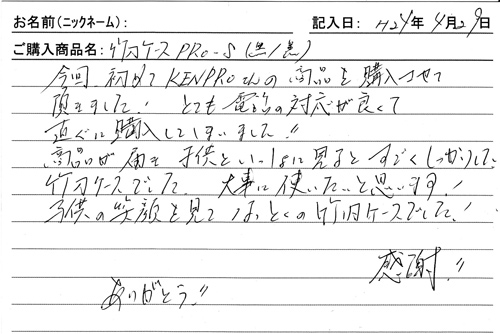 お名前(ニックネーム):
記入日: H24年 4月29日
ご購入商品名: 竹刀ケース PRO-S (黒/黒)
今回 初めて KENPROさんの商品を購入させて
頂きました! とても電話の対応が良くて
直ぐに購入してしまいました!!
商品が届き 子供といっしょに見ると すごくしっかりした
竹刀ケースでした. 大事に使いたいと思います!
子供の笑顔を見て なっとくの竹刀ケースでした!
感謝!!
ありがとう!!